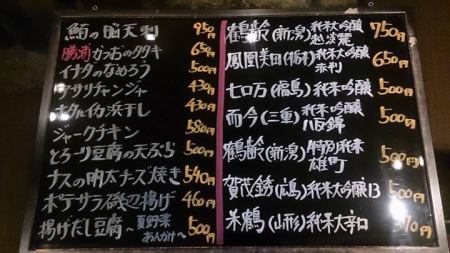 鮪の脳天刺 950円
勝浦かつおのタタキ 650円
イナダのなめろう 500円
クサリチャンジャ 430円
ホタルイカ浜干し 430円
ジャークチキン 580円
とろーり豆腐の天ぷら 500円
ナスの明太チーズ焼き 540円
ポテサラ磯辺揚げ 460円
揚げだし豆腐〜夏野菜あんかけ〜 500円
鶴齢(新潟)純米大吟醸 越淡麗 750円
鳳凰美田(栃木)純米大吟醸 赤判 650円
七ロ万(福島)純米吟醸 500円
而今(三重)純米吟醸 八反錦
鶴齢(新潟)特別純米 雄町 500円
賀茂秀(広島)純米大吟醸13 500円
米鶴(山形)純米大辛口 370円